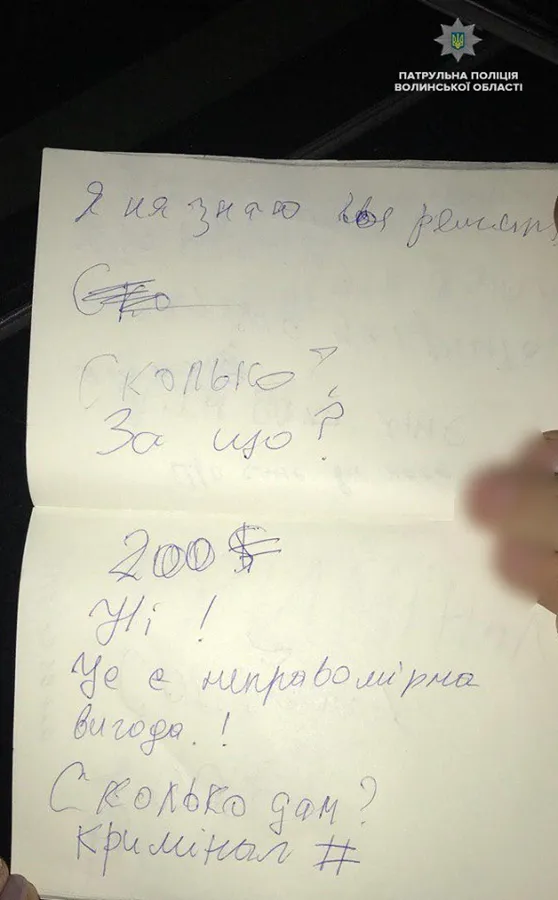 ПАТРУЛЬНА ПОЛІЦІЯ
ВОЛИНСЬКОЇ ОБЛАСТІ
Я ня знаю
Ско
Сколько?
За що?
200$
Ні !
Це є неправомірна
вигода.!
Сколько дам?
Кримінал #